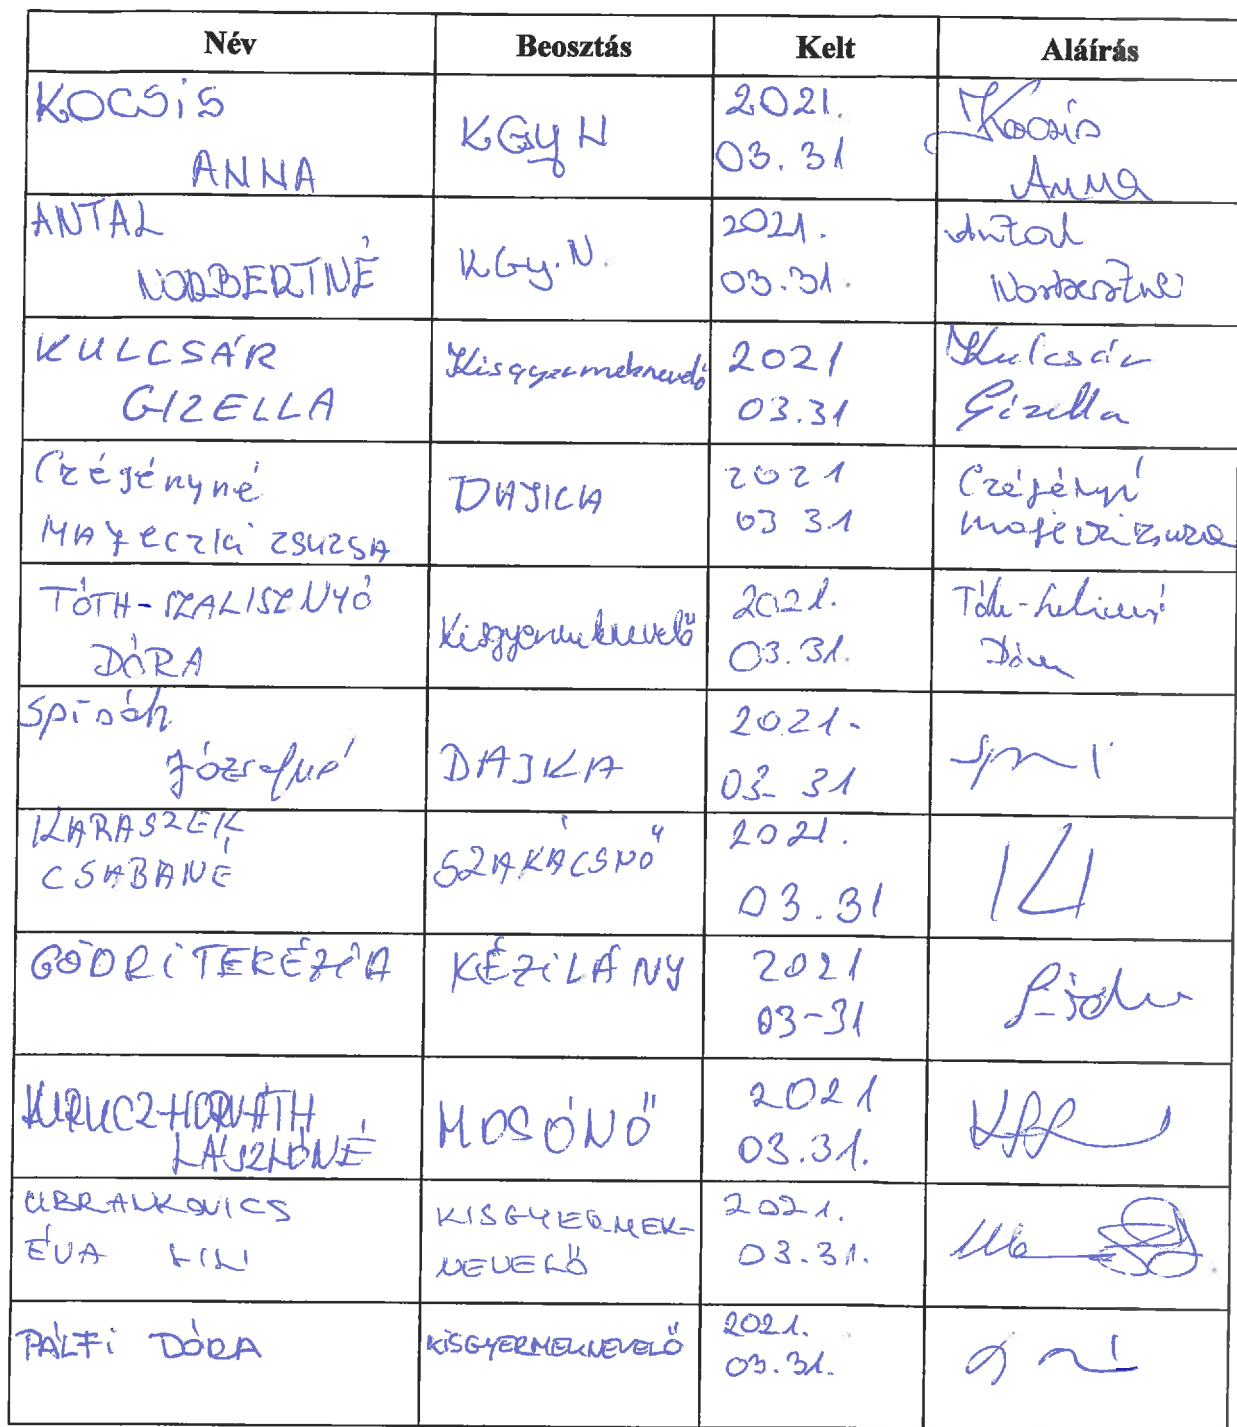 Név Beosztás Kelt Aláírás
KOCSIS
ANNA
KGY N
2021.
03.31
Kocsis
Anna
ANTAL
NORBERTNÉ
KGy.N.
2021.
03.31.
Antal
Norbertné
KULCSÁR
GIZELLA
Kisgyermeknevelő
2021
03.31
Kulcsár
Gizella
Czégényné
DAJKA
2021
03 31
TÓTH-SZALISZNYÓ
DÓRA
Kisgyermeknevelő
2021.
03.31.
Dóra
Spisák
Józsefné
DAJKA
2021.
03-31
KARASZEK
CSABÁNÉ
SZAKÁCSNŐ
2021.
03.31
GÖDRI TERÉZIA
KÉZILÁNY
2021
03-31
KURUCZ-HORVÁTH
LÁSZLÓNÉ
MOSÓNŐ
2021
03.31.
UBRANKOVICS
ÉVA LILI
KISGYERMEK-
NEVELŐ
2021.
03.31.
PÁLFI DÓRA
KISGYERMEKNEVELŐ
2021.
03.31.